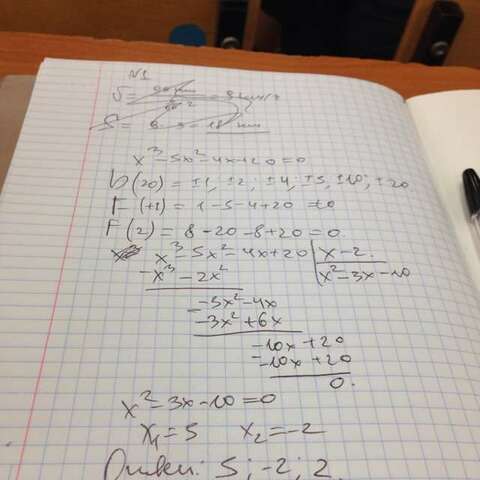 N1
x³-5x²-4x+20=0
b(20) = ±1, ±2; ±4; ±5, ±10; ±20
F(+1) = 1-5-4+20 ≠0
F(2) = 8-20-8+20=0.
x³-5x²-4x+20 | x-2.
-x³-2x² | x²-3x-10
-3x²-4x
-3x²+6x
-10x+20
-10x+20
0.
x²-3x-10=0
x₁=5 x₂=-2
Ответ: 5; -2; 2.